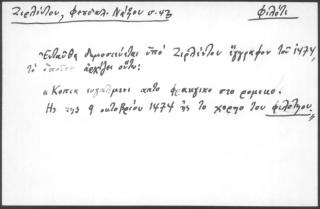 Ζερλέντου, Φεουδαλ. Νάξου σ. 47 Φιλότι
Ἐνταῦθα δημοσιεύεται ὑπὸ Ζερλέντου ἔγγραφον τοῦ 1474,
τὸ ὁποῖον ἀρχίζει οὕτω:
«Κοπια εβγαλμενι απτο φραγγικο στο ρομεικο.
Ης της 9 οκτοβρίου 1474 ης το χοργιο του φιλοτηου.»